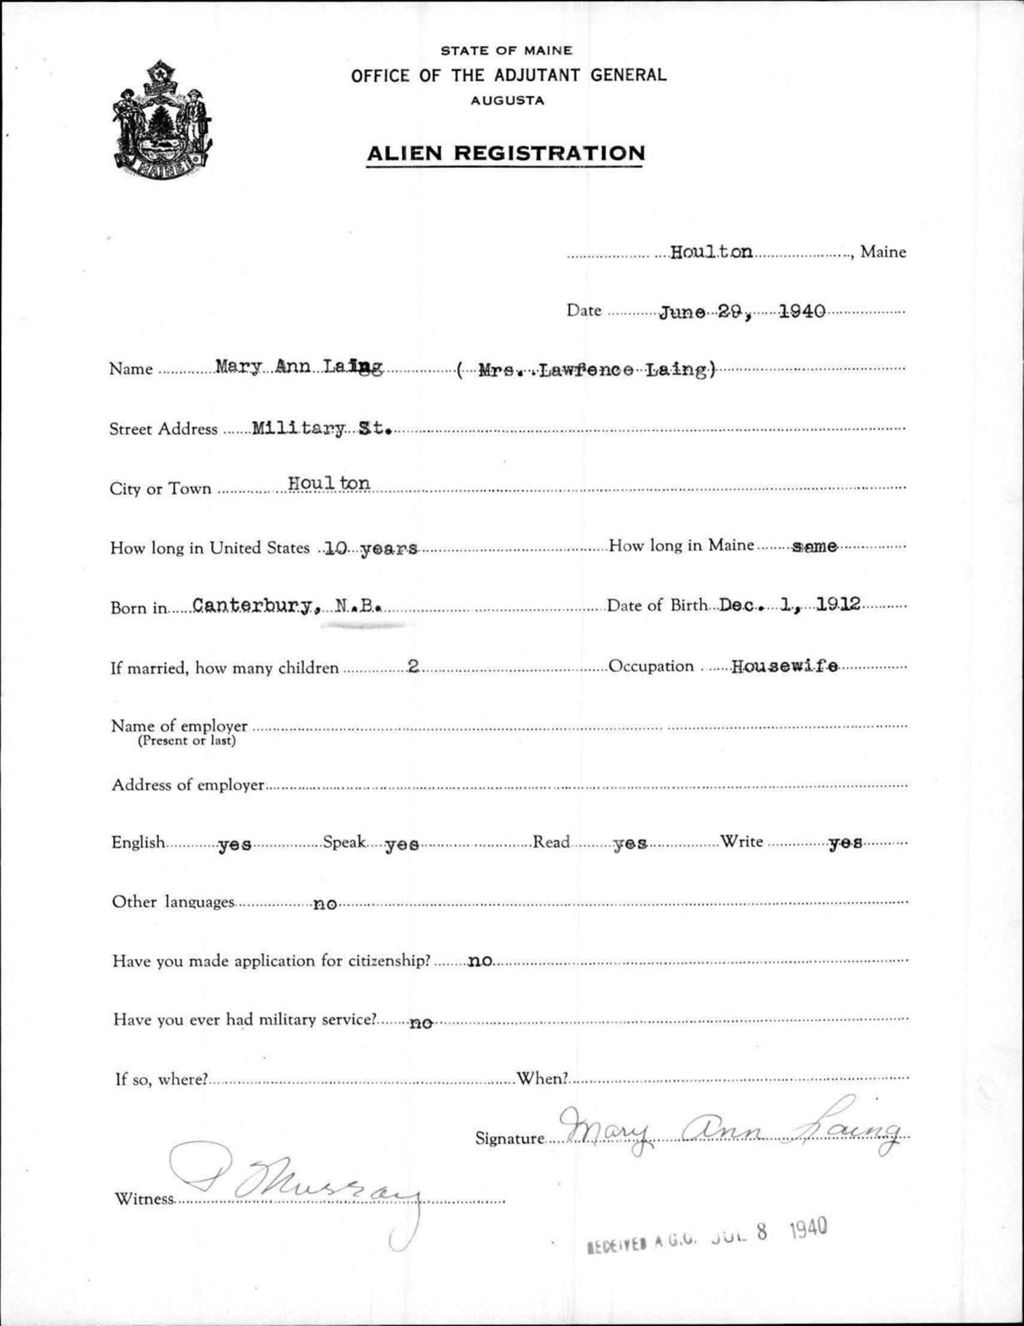 STATE OF MAINE
OFFICE OF THE ADJUTANT GENERAL
AUGUSTA
ALIEN REGISTRATION
MAINE
Houlton, Maine
Date June 29, 1940
Name Mary Ann Laing (Mrs. Lawrence Laing)
Street Address Military St.
City or Town Houlton
How long in United States 10 years How long in Maine same
Born in Canterbury, N.B. Date of Birth Dec. 1, 1912
If married, how many children 2 Occupation Housewife
Name of employer
(Present or last)
Address of employer
English yes Speak yes Read yes Write yes
Other languages no
Have you made application for citizenship? no
Have you ever had military service? no
If so, where? When?
Signature Mary Ann Laing
Witness P Murray
RECEIVED A.G.O. JUL 8 1940